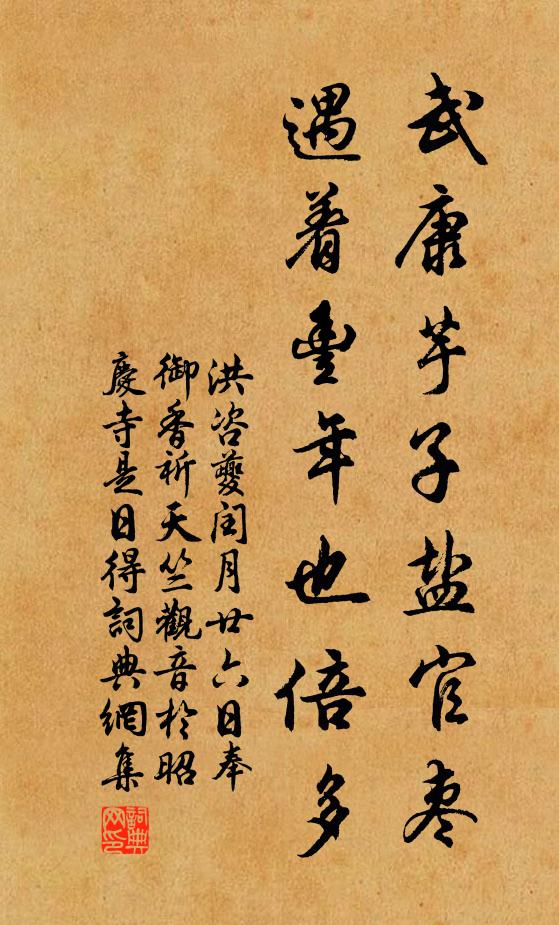 武康芋子盐官枣
遇着豊年也倍多
洪咨夔闰月廿六日奉
御香祈天竺觀音於昭
慶寺是日得詞典網集
詞典网印